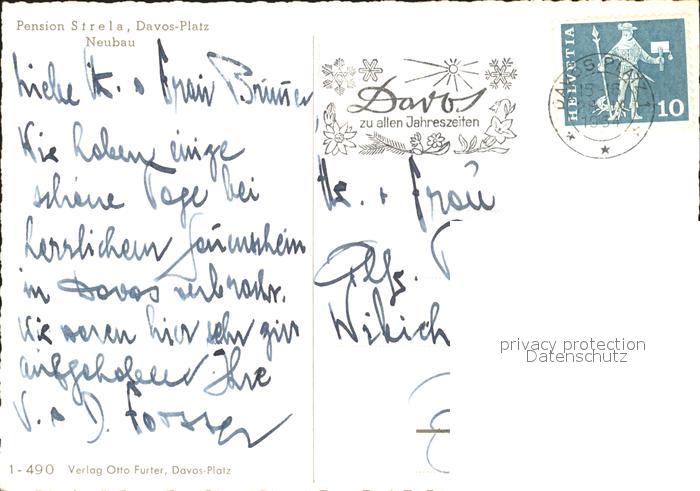 Pension Strela, Davos-Platz
Neubau
Liebe Hr. + Frau Brunner
Wir haben einige
schöne Tage bei
herrlichem Sonnenschein
in Davos verbracht.
Wir waren hier sehr gut
aufgehoben Ihre
V. + D. Forster
1-490 Verlag Otto Furter, Davos-Platz
Davos
zu allen Jahreszeiten
HELVETIA
10
DAVOS PLATZ 1
Hr. + Frau
Wikich
privacy protection
Datenschutz